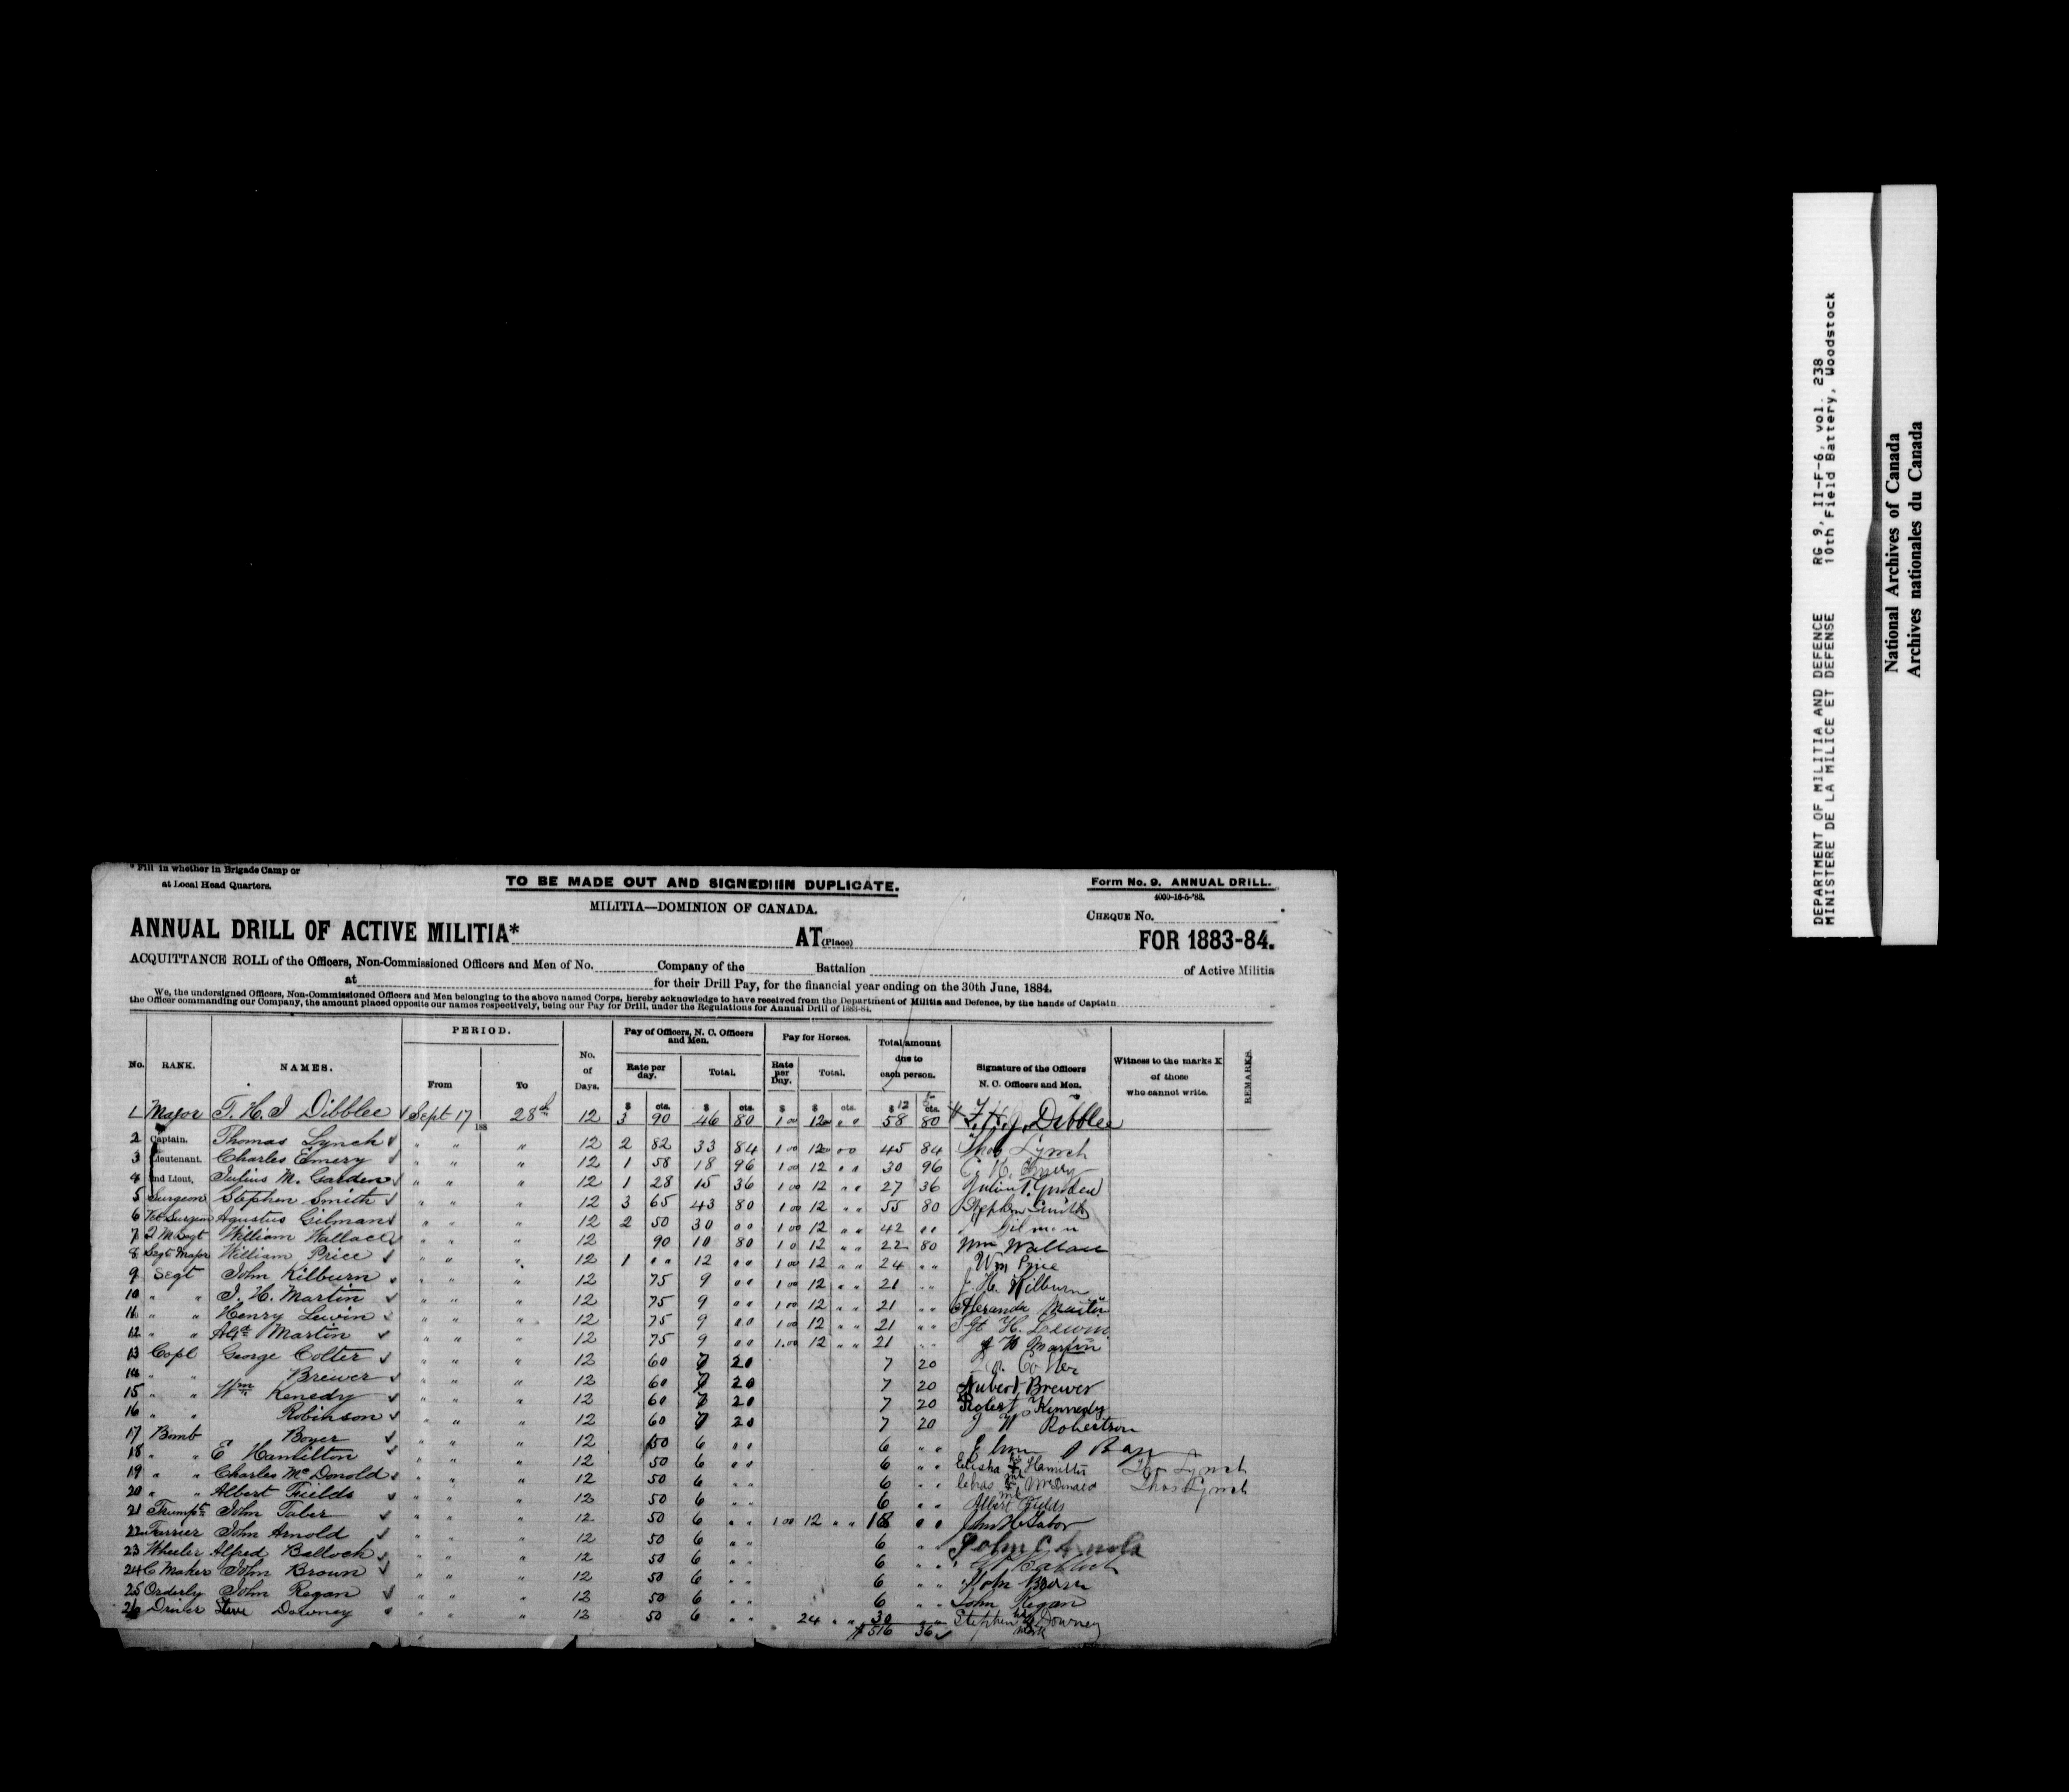 * Fill in whether in Brigade Camp or
at Local Head Quarters.
TO BE MADE OUT AND SIGNED IN DUPLICATE.
Form No. 9. ANNUAL DRILL.
4000-16-5-'83.
MILITIA—DOMINION OF CANADA.
CHEQUE No.
ANNUAL DRILL OF ACTIVE MILITIA* AT (Place) FOR 1883-84.
ACQUITTANCE ROLL of the Officers, Non-Commissioned Officers and Men of No. Company of the Battalion of Active Militia
at for their Drill Pay, for the financial year ending on the 30th June, 1884.
We, the undersigned Officers, Non-Commissioned Officers and Men belonging to the above named Corps, hereby acknowledge to have received from the Department of Militia and Defence, by the hands of Captain
the Officer commanding our Company, the amount placed opposite our names respectively, being our Pay for Drill, under the Regulations for Annual Drill of 1883-84.
No. RANK. NAMES. PERIOD. From To No. of Days. Pay of Officers, N. C. Officers and Men. Rate per day. Total. Pay for Horses. Rate per Day. Total. Total amount due to each person. Signature of the Officers N. C. Officers and Men. Witness to the marks X of those who cannot write. REMARKS.
$ cts. $ cts. $ $ cts. $ cts.
1 Major T. H. J Dibblee Sept 17 188 28th 12 3 90 46 80 1 00 12 " " 58 80 Dibblee
2 Captain. Thomas Lynch " " " 12 2 82 33 84 1 00 12 00 45 84 Thos Lynch
3 Lieutenant. Charles Emery " " " 12 1 58 18 96 1 00 12 " " 30 96 C. H. Emery
4 2nd Lieut, Julius M. Garden " " " 12 1 28 15 36 1 00 12 " " 27 36 Julius Garden
5 Surgeon Stephen Smith " " " 12 3 65 43 80 1 00 12 " " 55 80 Stephen Smith
6 Vet Surgeon Agustus Gilman " " " 12 2 50 30 " " 1 00 12 " " 42 " " Gilman
7 Q M Segt William Wallace " " " 12 90 10 80 1 0 12 " " 22 80 Wm Wallace
8 Segt Major William Price " " " 12 1 " " 12 " " 1 00 12 " " 24 " " Wm Price
9 Segt John Kilburn " " " 12 75 9 " " 1 00 12 " " 21 " " J. H. Kilburn
10 " " J. H. Martin " " " 12 75 9 " " 1 00 12 " " 21 " " Martin
11 " " Henry Lewin " " " 12 75 9 " " 1 00 12 " " 21 " " Sgt H. Lewin
12 " " Alxd Martin " " " 12 75 9 " " 1 00 12 " " 21 " " J H Martin
13 Copl George Colter " " " 12 60 7 20 7 20 Colter
14 " " Brewer " " " 12 60 7 20 7 20 Hubert Brewer
15 " " Wm Kenedy " " " 12 60 7 20 7 20 Robert Kennedy
16 " " Robinson " " " 12 60 7 20 7 20 J W Robertson
17 Bomb Boyer " " " 12 50 6 " " 6 " "
18 " " E Hamilton " " " 12 50 6 " " 6 " " Elisha X Hamilton Thos Lynch
19 " " Charles McDonold " " " 12 50 6 " " 6 " " Chas X McDonald Thos Lynch
20 " " Albert Fields " " " 12 50 6 " " 6 " " Albert Fields
21 Trumptr John Taber " " " 12 50 6 " " 1 00 12 " " 18 " " John H Tabor
22 Farrier John Arnold " " " 12 50 6 " " 6 " " John C Arnold
23 Wheeler Alfred Balloch " " " 12 50 6 " " 6 " " Balloch
24 C Maker John Brown " " " 12 50 6 " " 6 " " John Brown
25 Orderly John Regan " " " 12 50 6 " " 6 " " John Regan
26 Driver Steve Downey " " " 12 50 6 " " 24 " " 30 " " Stephen his X mark Downey
$ 516 36
DEPARTMENT OF MILITIA AND DEFENCE RG 9, II-F-6, vol. 238
MINISTERE DE LA MILICE ET DEFENSE 10th Field Battery, Woodstock
National Archives of Canada
Archives nationales du Canada